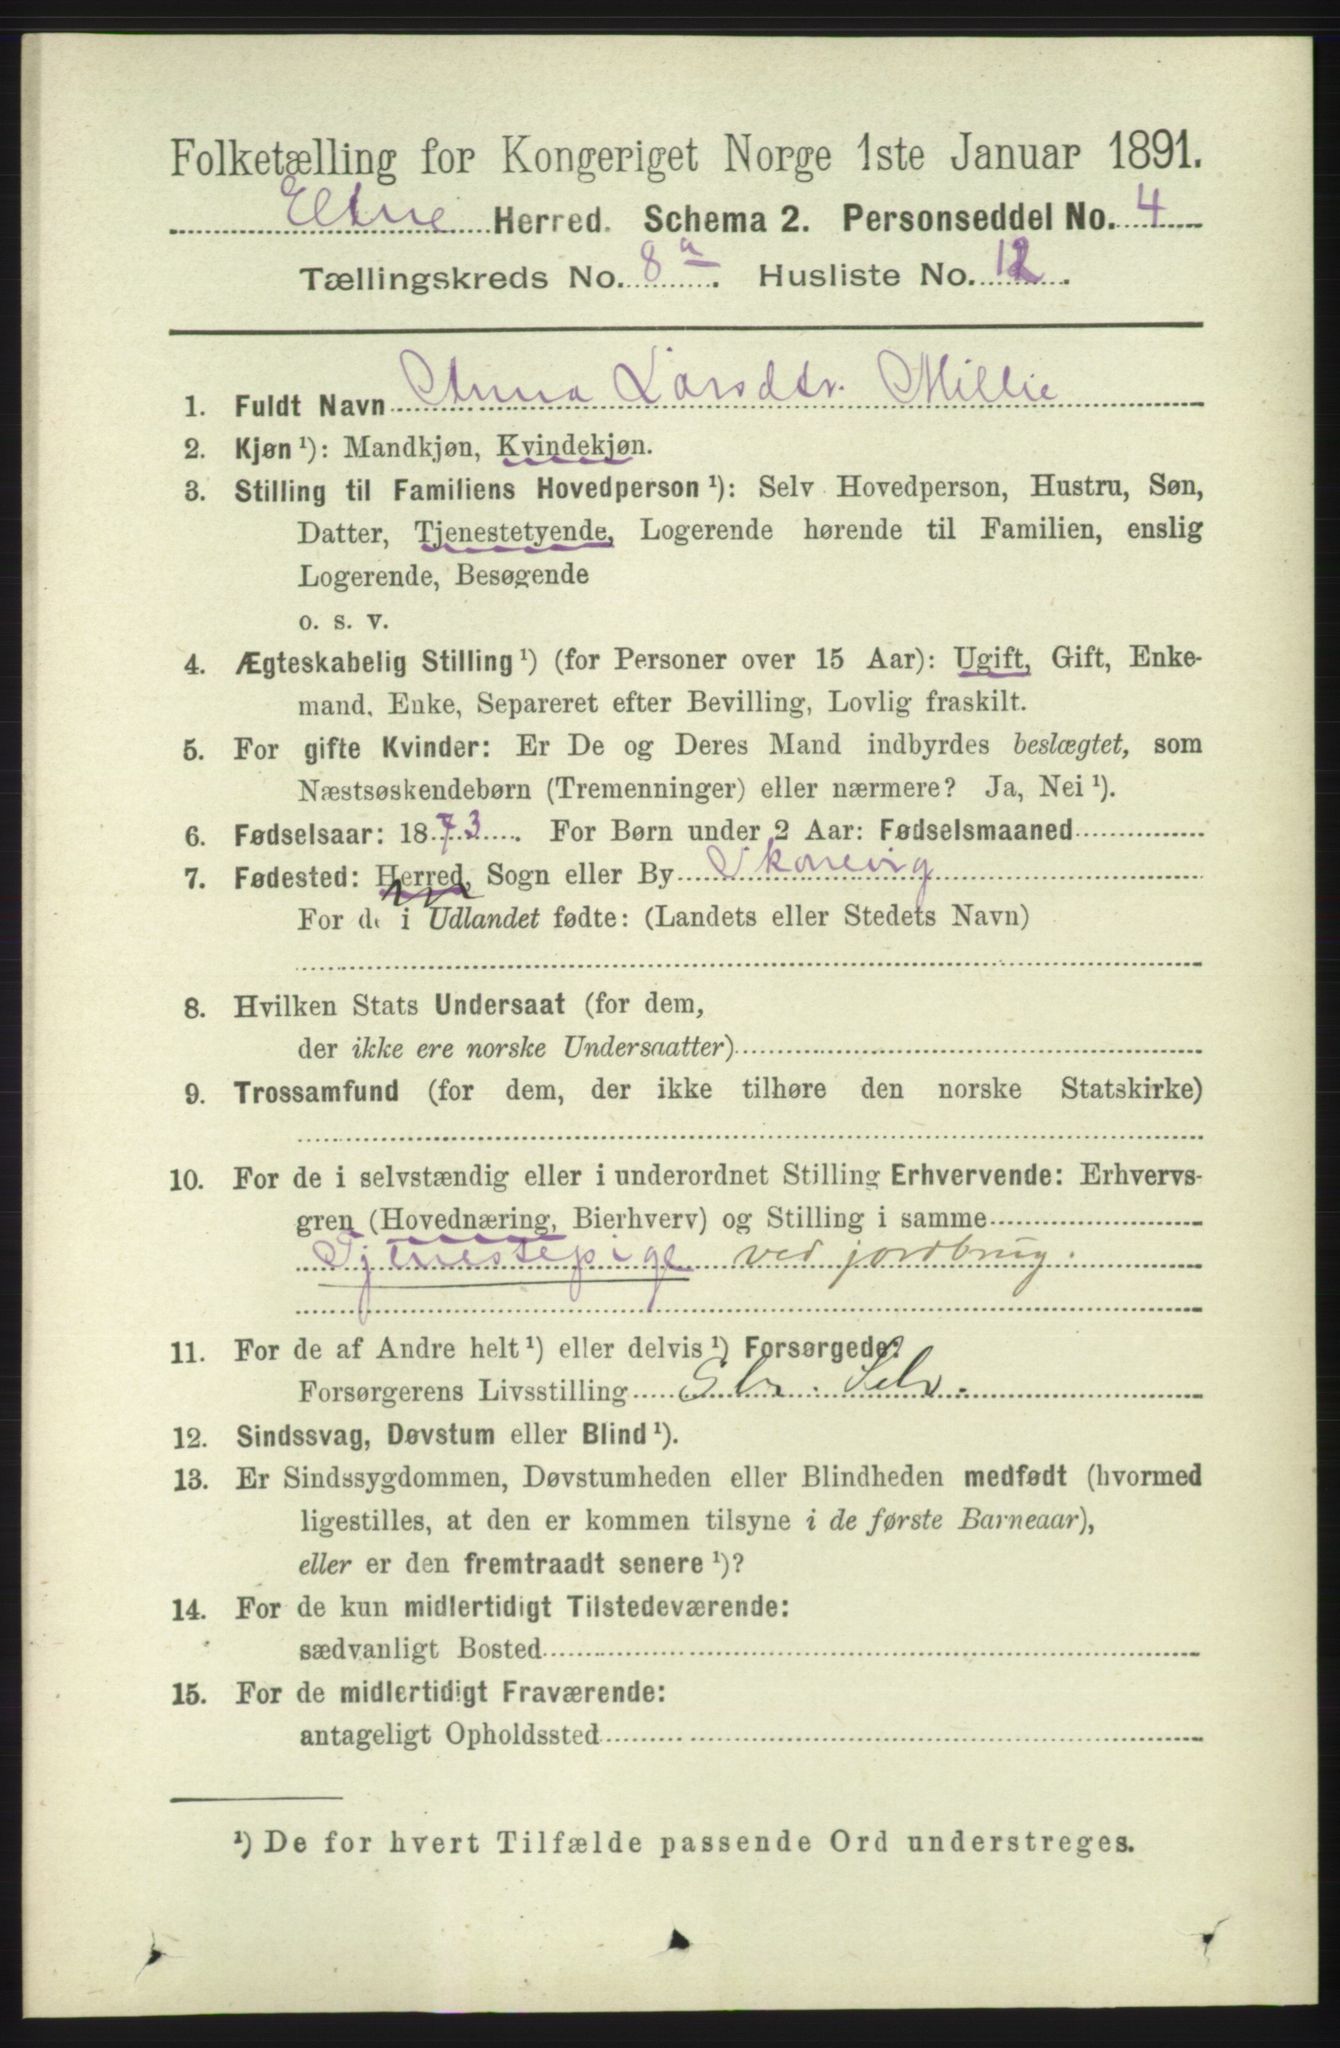 Folketælling for Kongeriget Norge 1ste Januar 1891.
Etne Herred. Schema 2. Personseddel No. 4
Tællingskreds No. 8a. Husliste No. 12.
1. Fuldt Navn Anna Larsdtr. Millie
2. Kjøn ¹): Mandkjøn, Kvindekjøn.
3. Stilling til Familiens Hovedperson ¹): Selv Hovedperson, Hustru, Søn,
Datter, Tjenestetyende, Logerende hørende til Familien, enslig
Logerende, Besøgende
o. s. v.
4. Ægteskabelig Stilling ¹) (for Personer over 15 Aar): Ugift, Gift, Enke-
mand, Enke, Separeret efter Bevilling, Lovlig fraskilt.
5. For gifte Kvinder: Er De og Deres Mand indbyrdes beslægtet, som
Næstsøskendebørn (Tremenninger) eller nærmere? Ja, Nei ¹).
6. Fødselsaar: 1873. For Børn under 2 Aar: Fødselsmaaned
7. Fødested: Herred, Sogn eller By Skonevig
For de i Udlandet fødte: (Landets eller Stedets Navn)
8. Hvilken Stats Undersaat (for dem,
der ikke ere norske Undersaatter)
9. Trossamfund (for dem, der ikke tilhøre den norske Statskirke)
10. For de i selvstændig eller i underordnet Stilling Erhvervende: Erhvervs-
gren (Hovednæring, Bierhverv) og Stilling i samme
Tjenestepige ved jordbrug.
11. For de af Andre helt ¹) eller delvis ¹) Forsørgede:
Forsørgerens Livsstilling Selv.
12. Sindssvag, Døvstum eller Blind ¹).
13. Er Sindssygdommen, Døvstumheden eller Blindheden medfødt (hvormed
ligestilles, at den er kommen tilsyne i de første Barneaar),
eller er den fremtraadt senere ¹)?
14. For de kun midlertidigt Tilstedeværende:
sædvanligt Bosted
15. For de midlertidigt Fraværende:
antageligt Opholdssted
¹) De for hvert Tilfælde passende Ord understreges.